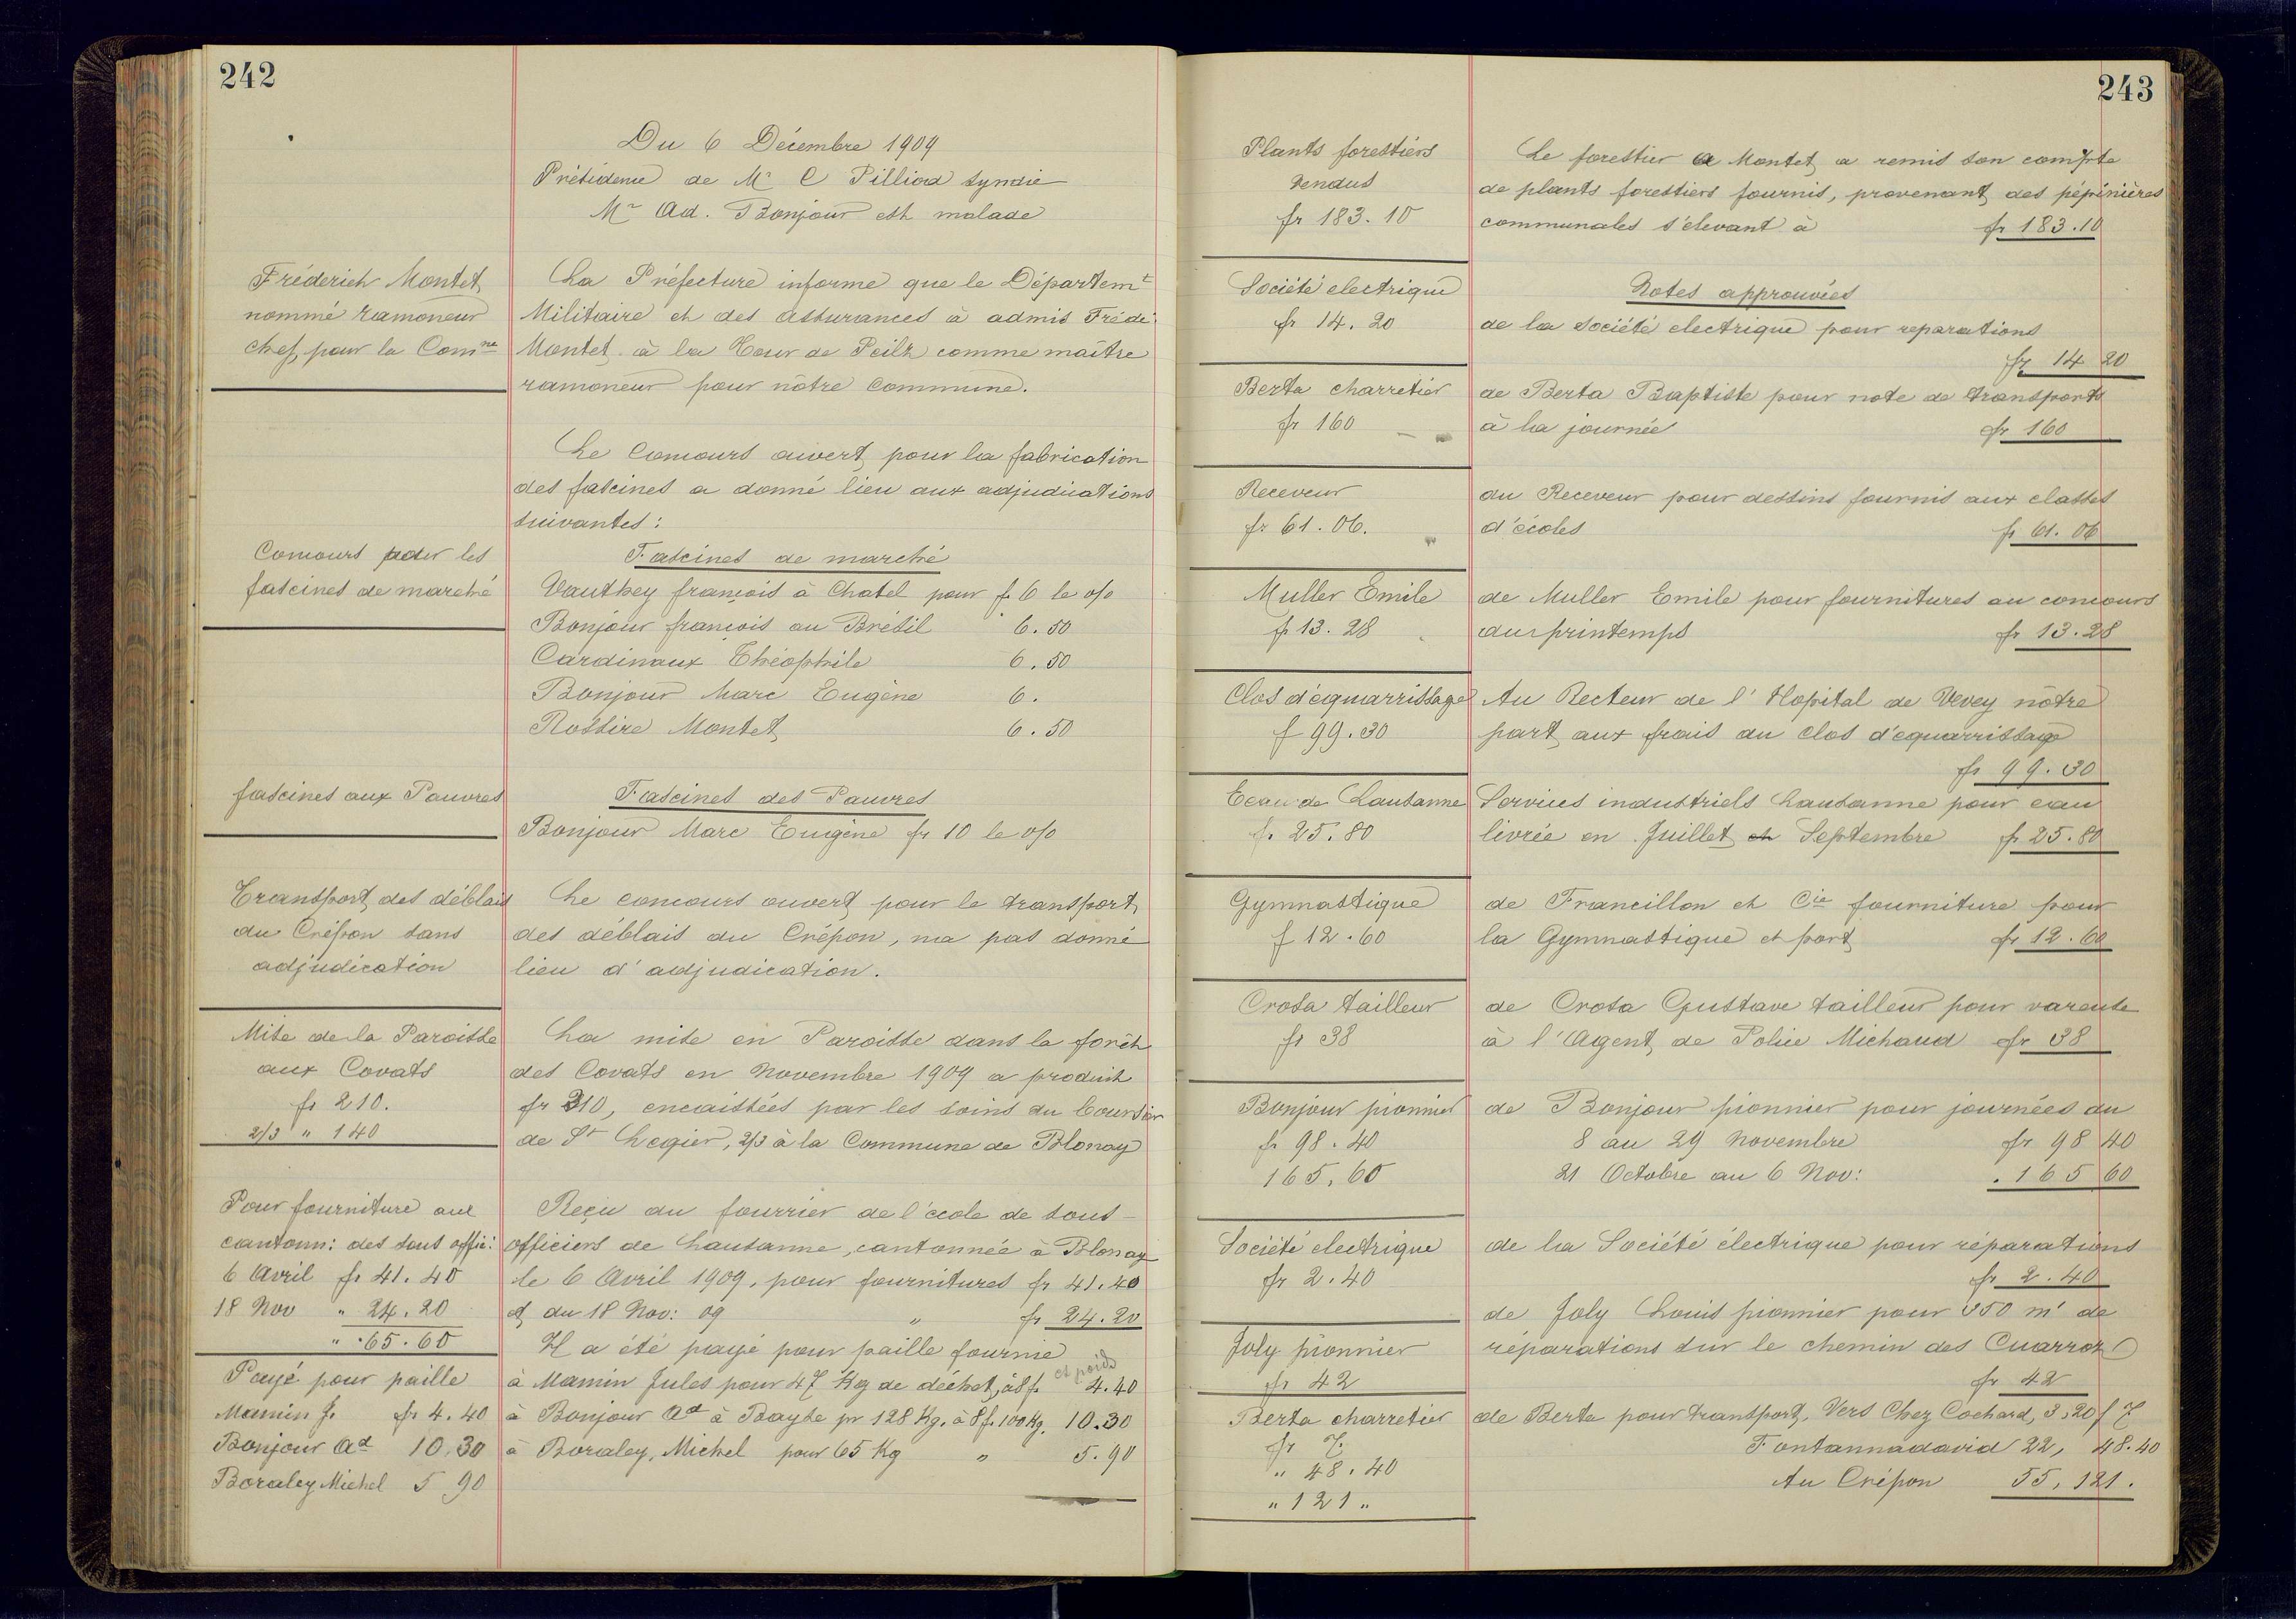 242
Du 6 Décembre 1909
Présidence de Mr C Pilliod syndic
Mr Ad. Bonjour est malade
Fréderich Montet
nommé ramoneur
chef pour la Comne
La Préfecture informe que le Départemt
Militaire et des assurances à admis Frédé
Montet à la Tour de Peilz comme maître
ramoneur pour nôtre Commune.
Le Concours ouvert pour la fabrication
des fascines a donné lieu aux adjudications
suivantes :
Concours pour les
fascines de marché
Fascines de marché
Vauthey françois à Chatel pour f. 6 le o/o
Bonjour françois au Brésil 6.50
Cardinaux Théophile 6.50
Bonjour Marc Eugène 6.
Rossire Montet 6.50
fascines aux Pauvres
Fascines des Pauvres
Bonjour Marc Eugène fr 10 le o/o
Transport des déblais
du Crépon sans
adjudication
Le concours ouvert pour le transport
des déblais du Crépon, n'a pas donné
lieu d'adjudication.
Mise de la Paroisse
aux Covats
fr 210.
2/3 " 140
La mise en Paroisse dans la forêt
des Covats en Novembre 1909 a produit
fr 210, encaissées par les soins du boursier
de St Legier, 2/3 à la Commune de Blonay
Pour fourniture aux
cantonn: des sous offic:
6 Avril fr 41.40
18 Nov " 24.20
" 65.60
Reçu du fourrier de l'école de sous-
officiers de Lausanne, cantonnée à Blonay
le 6 Avril 1909, pour fournitures fr 41.40
et du 18 Nov: 09 " fr 24.20
Payé pour paille
Mamin J. fr 4.40
Bonjour Ad 10.30
Boraley Michel 5 90
Il a été payé pour paille fournie
et poids
à Mamin Jules pour 47 Kg de déchet, à 8 f. 4.40
à Bonjour Ad à Bayse pr 128 Kg. à 8 f. 100 Kg. 10.30
à Boraley, Michel pour 65 Kg " 5.90
243
Plants forestiers
vendus
fr 183.10
Le forestier a Montet a remis son compte
de plants forestiers fournis, provenant des pépinières
communales s'élevant à fr 183.10
Société electrique
fr 14.20
Notes approuvées
de la Société electrique pour reparations
fr 14 20
Berta charretier
fr 160
de Berta Baptiste pour note de transports
à la journée fr 160
Receveur
fr 61.06.
du Receveur pour dessins fournis aux classes
d'écoles fr 61.06
Muller Emile
fr 13.28
de Muller Emile pour fournitures au concours
du printemps fr 13.28
Clos d'équarrissage
f 99.30
Au Recteur de l'Hopital de Vevey nôtre
part aux frais du clos d'équarrissage
fr 99.30
Eau de Lausanne
fr. 25.80
Services industriels Lausanne pour eau
livrée en Juillet et Septembre fr 25.80
Gymnastique
f 12.60
de Francillon et Cie fourniture pour
la Gymnastique et port fr 12.60
Crosa tailleur
fr 38
de Crosa Gustave tailleur pour vareuse
à l'Agent de Police Michaud fr 38
Bonjour pionnier
fr 98.40
165.60
de Bonjour pionnier pour journées du
8 au 29 Novembre fr 98 40
21 Octobre au 6 Nov: " 165 60
Société electrique
fr 2.40
de la Société électrique pour réparations
fr 2.40
Joly pionnier
fr 42
de Joly Louis pionnier pour 350 m' de
réparations sur le chemin des Cuarroz
fr 42
Berta charretier
fr 7.
" 48.40
" 121 "
de Berta pour transport, Vers Chez Cochard, 3,20 f 7
Fontannadavid 22, 48.40
Au Crépon 55, 121.